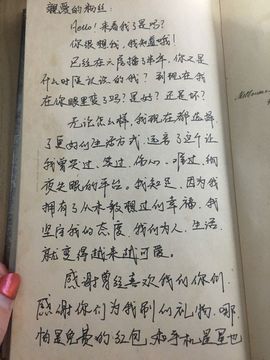 亲爱的粉丝:
Hello! 来看我了是吗?
你很想我,我知道哦!
已经在六房播了半年,你又是
什么时候认识的我? 到现在我
在你眼里变了吗? 是好? 还是坏?
无论怎么样,我现在都选择
了更好的生活方式,远离了这个让
我曾哭过、笑过、伤心、难过、彻
夜失眠的平台。我知足,因为我
拥有了从未敢想过的幸福,我
坚定我的态度,我的为人,生活
就变得越来越可爱。
感谢曾经喜欢我的你们
感谢你们为我刷的礼物,哪
怕是免费的红包,和手机星星也